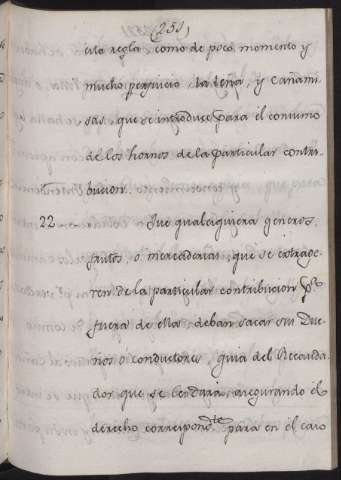 (251)
cito regla como de poco momento y
mucho perjuicio, la leña, y cañami
zas, que se introduce para el consumo
de los hornos de la particular contri
bucion.
22 Que qualesquiera generos,
frutos, o mercaderias, que se extrage
ren de la particular contribucion p.ª
fuera de ella deban sacar sus Due
ños o conductores, guia del Recauda
dor que se les dará, asegurando el
derecho correspond.te para en el caso